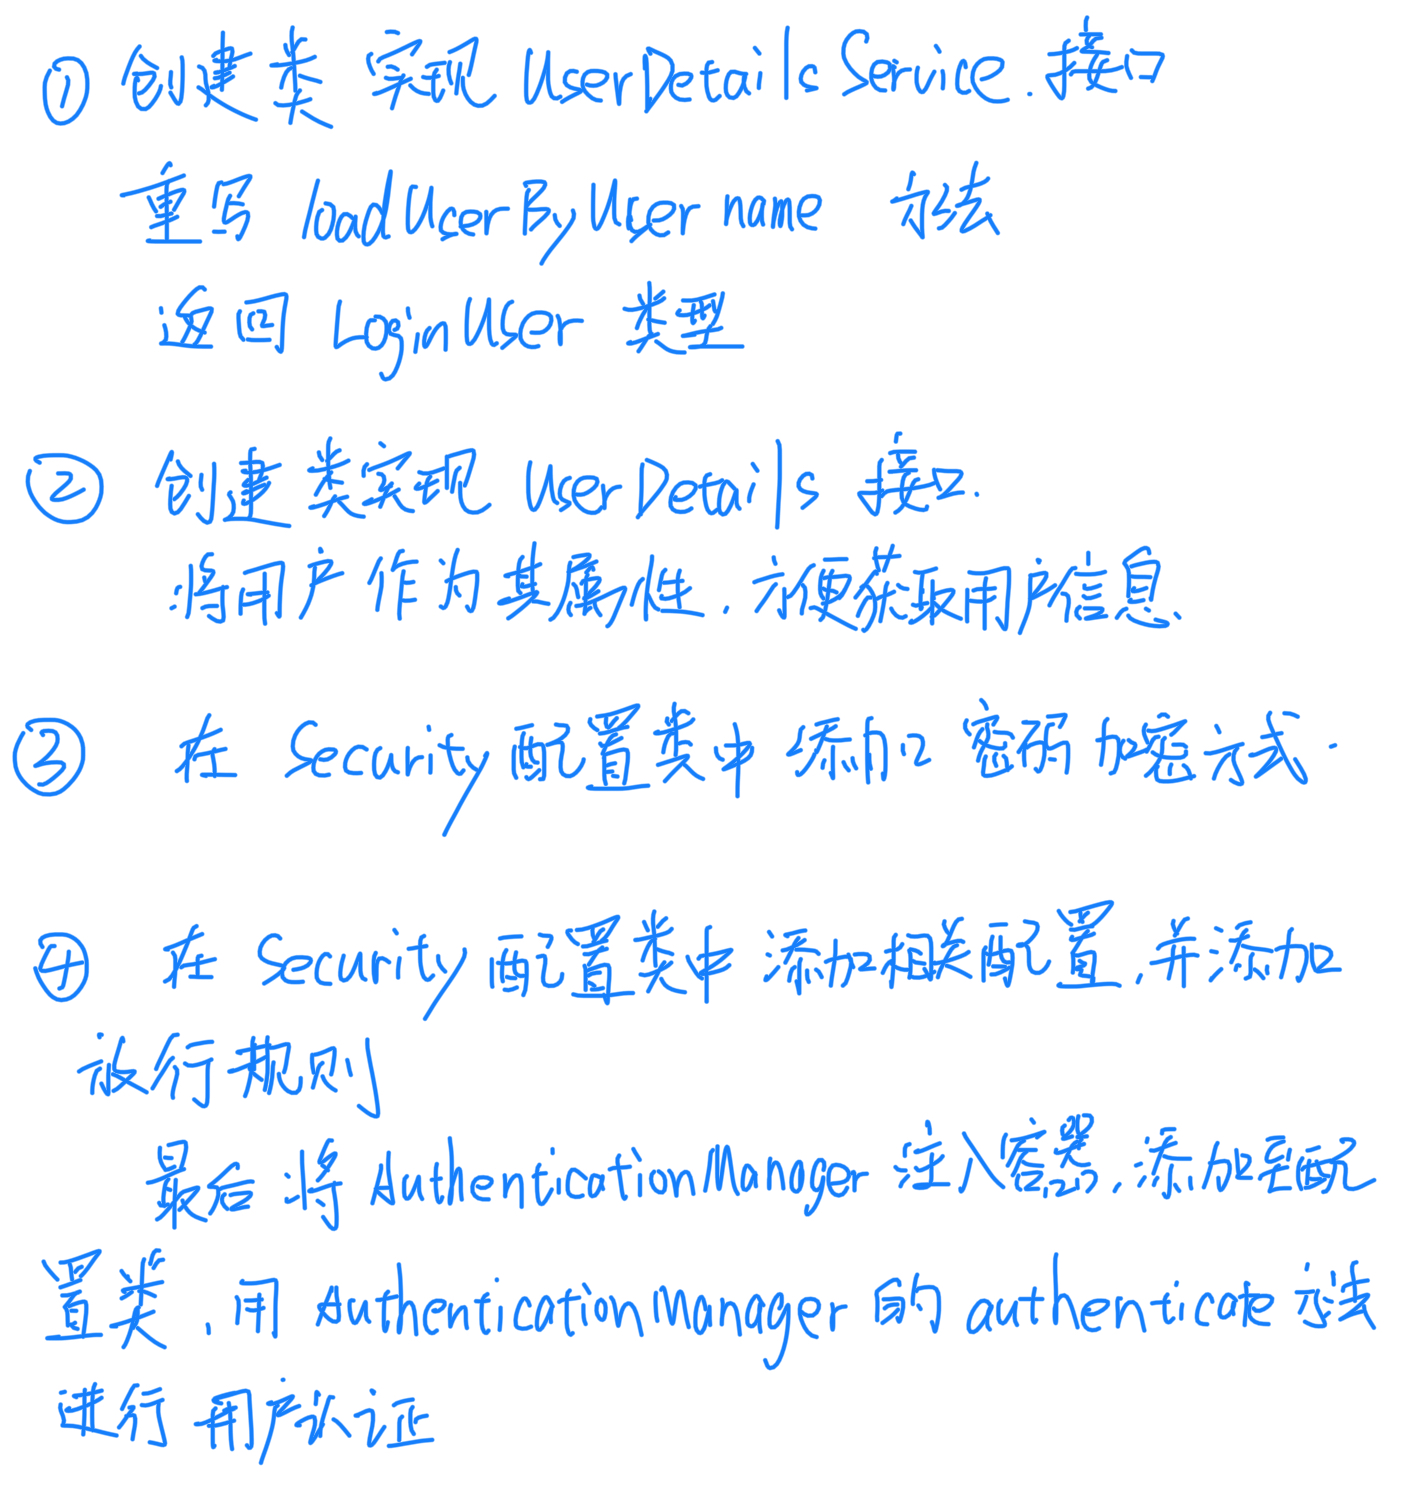 ① 创建类 实现 UserDetailsService.接口
重写 loadUserByUsername 方法
返回 LoginUser 类型
② 创建类实现 UserDetails 接口.
将用户作为其属性,方便获取用户信息.
③ 在 Security 配置类中 添加 密码加密方式.
④ 在 Security 配置类中 添加相关配置,并添加
放行规则
最后将 AuthenticationManager 注入容器,添加至配
置类,用 AuthenticationManager 的 authenticate 方法
进行用户认证